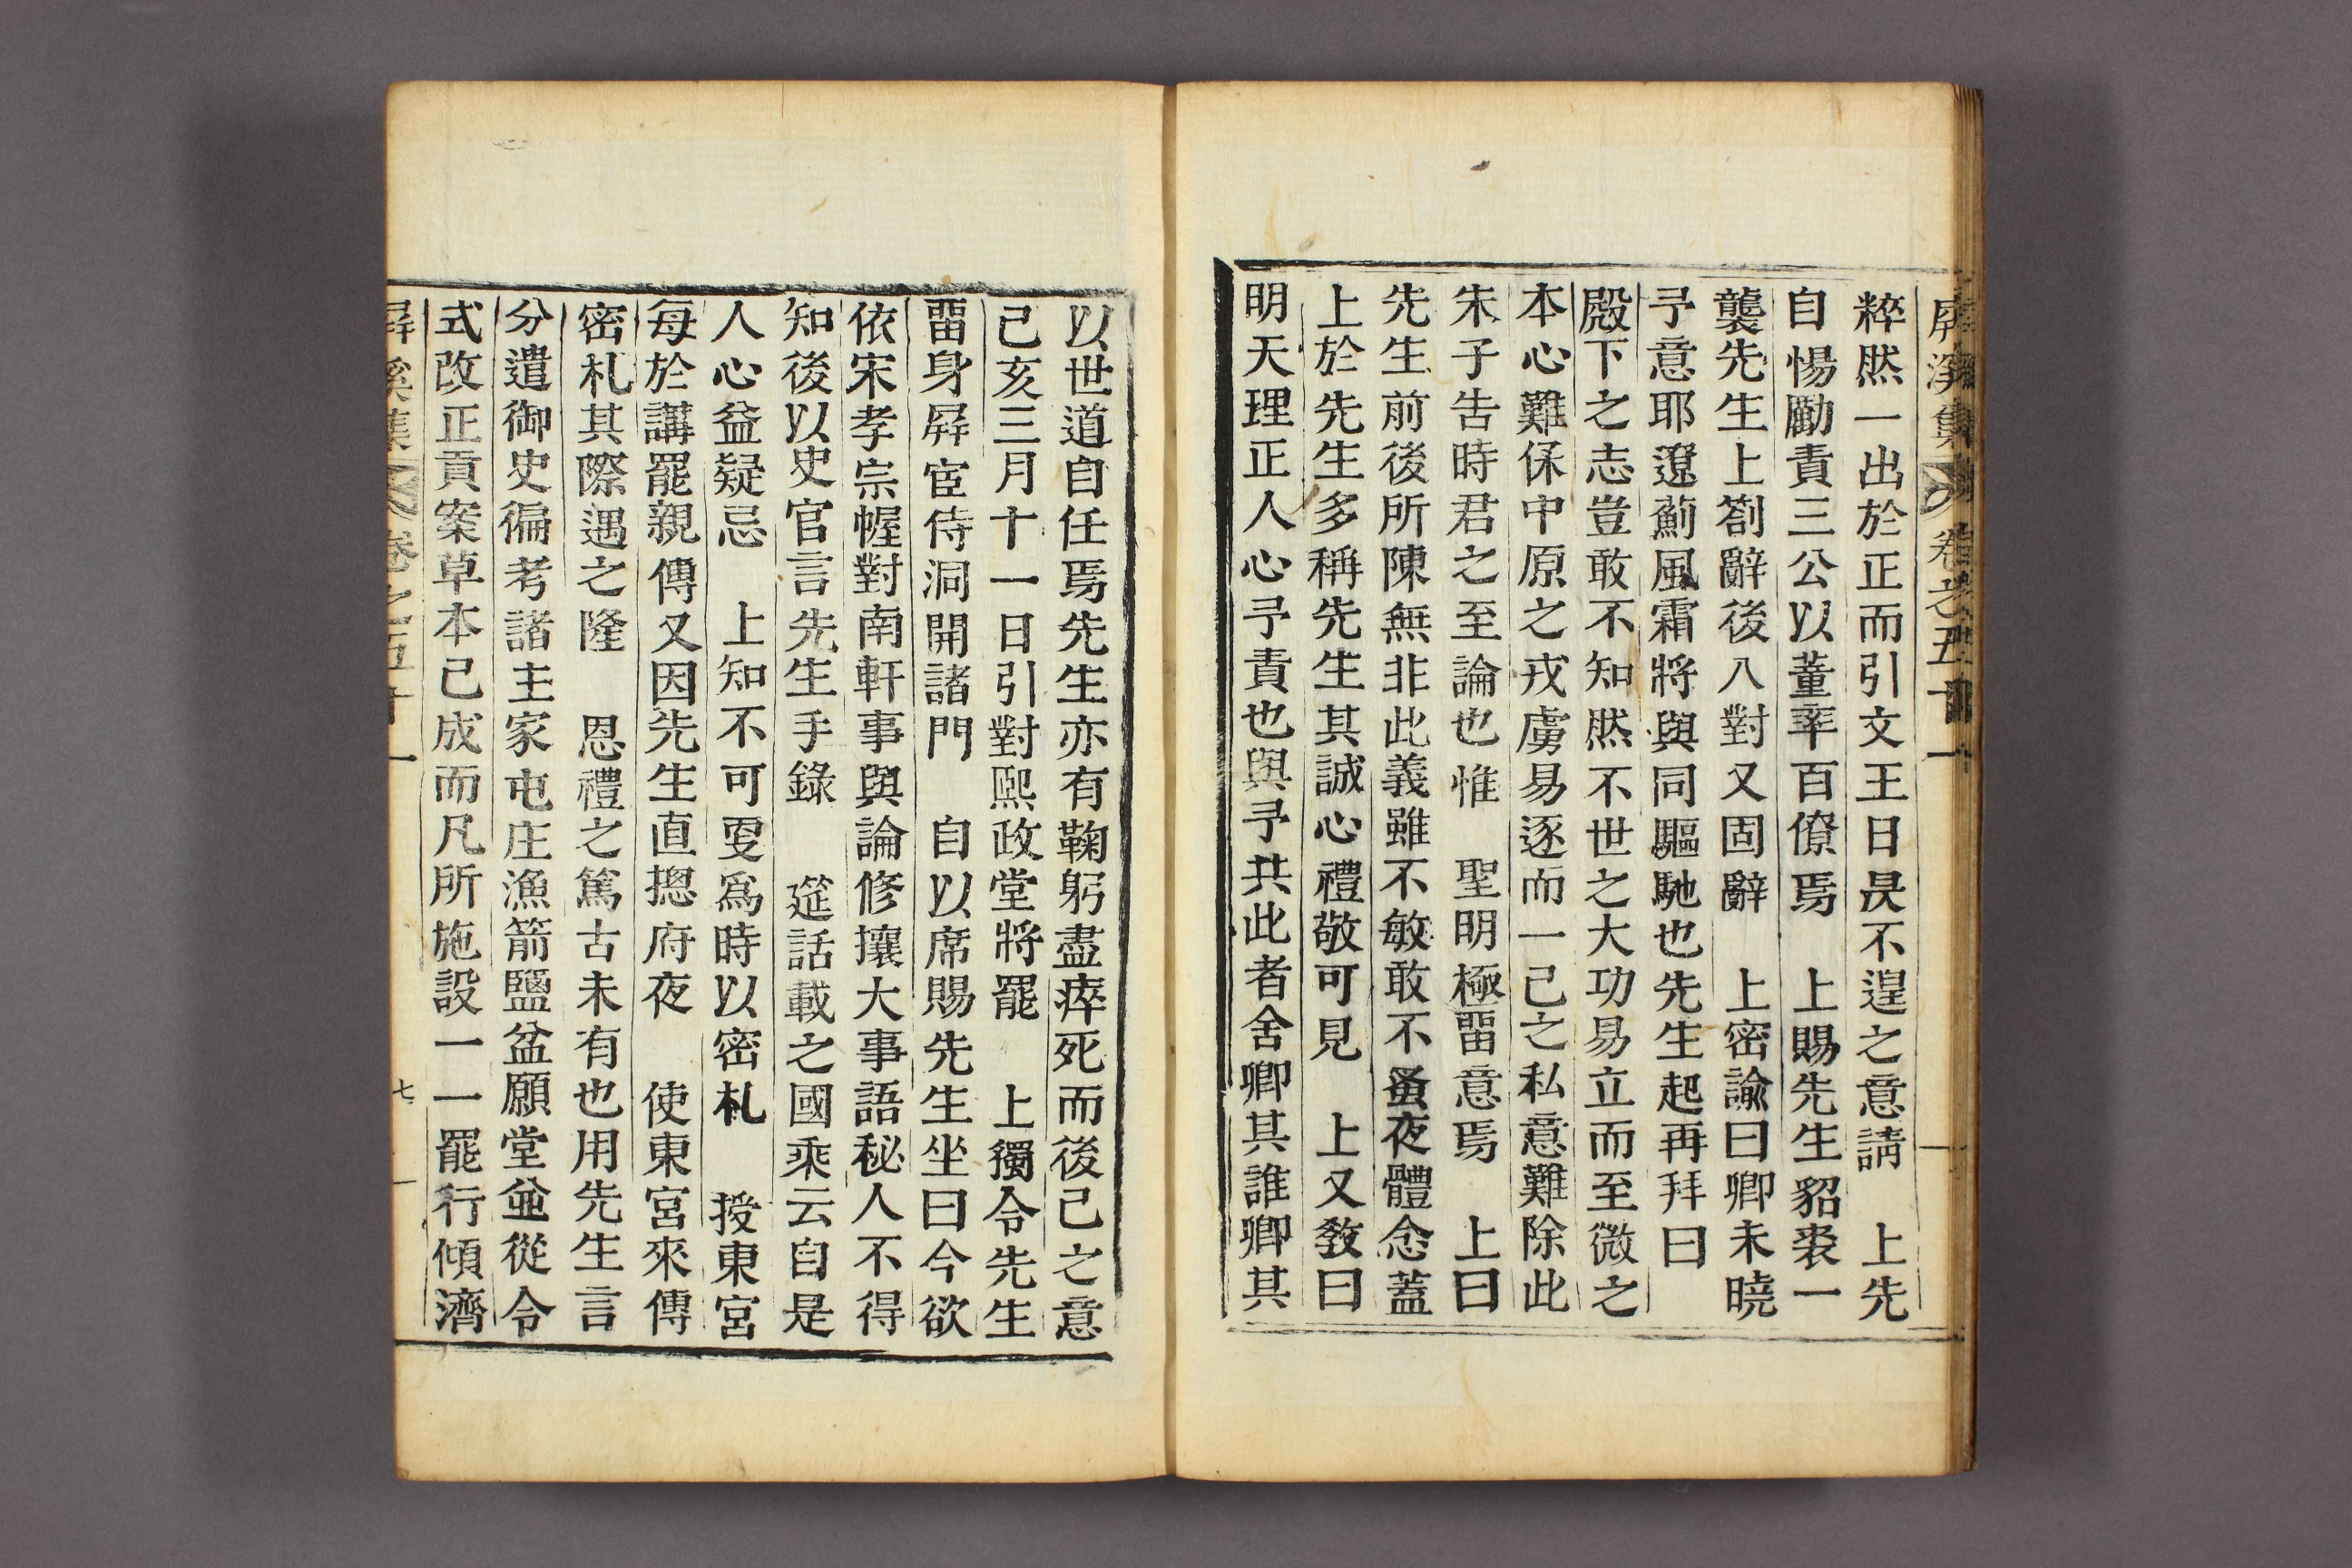 屛溪集 卷之五十一
粹然一出於正而引文王日昃不遑之意請　上先
自惕勵責三公以董率百僚焉　上賜先生貂裘一
襲先生上劄辭後入對又固辭　上密諭曰卿未曉
予意耶遼薊風霜將與同驅馳也先生起再拜曰
殿下之志豈敢不知然不世之大功易立而至微之
本心難保中原之戎虜易逐而一己之私意難除此
朱子告時君之至論也惟　聖明極畱意焉　上曰
先生前後所陳無非此義雖不敏敢不蚤夜體念蓋
上於先生多稱先生其誠心禮敬可見　上又敎曰
明天理正人心予責也與予共此者舍卿其誰卿其
以世道自任焉先生亦有鞠躬盡瘁死而後已之意
己亥三月十一日引對熙政堂將罷　上獨令先生
畱身屛宦侍洞開諸門　自以席賜先生坐曰今欲
依宋孝宗幄對南軒事與論修攘大事語秘人不得
知後以史官言先生手錄　筵話載之國乘云自是
人心益疑忌　上知不可亟爲時以密札　授東宮
每於講罷親傳又因先生直摠府夜　使東宮來傳
密札其際遇之隆　恩禮之篤古未有也用先生言
分遣御史徧考諸主家屯庄漁箭鹽盆願堂並從令
式改正貢案草本已成而凡所施設一一罷行傾濟
屛溪集 卷之五十一 七